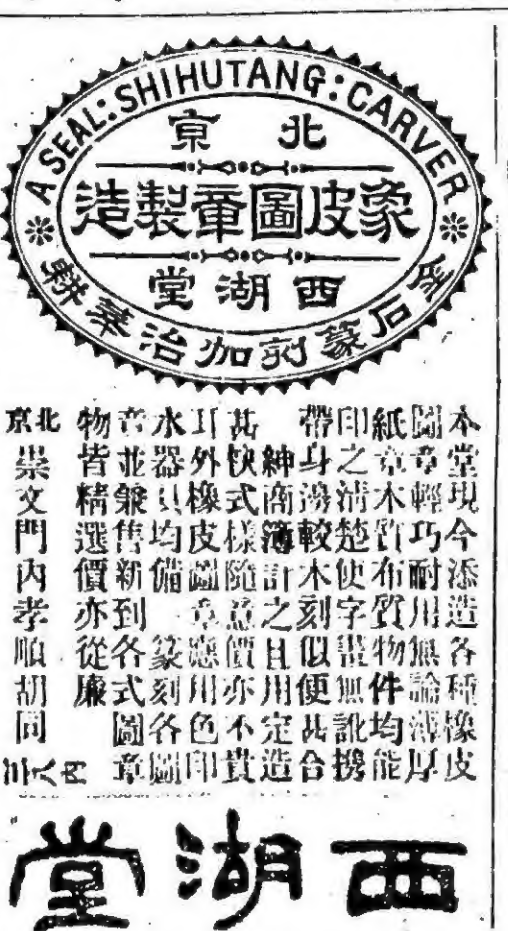 A SEAL: SHIHUTANG: CARVER
北京
象皮圖章製造
西湖堂
金石篆刻加治
本堂現今添造各種橡皮
圖章輕巧耐用無論薄厚
紙章木質布質物件均能
印之清楚使字畫無訛攜
帶身邊較木刻似便甚合
紳商簿計之且用定造
甚快式樣隨意價亦不貴
耳外橡皮圖章應用色印
水器具均備 篆刻各圖
章並兼售新到各式圖章
物皆精選價亦從廉
北京崇文門內孝順胡同
西湖堂